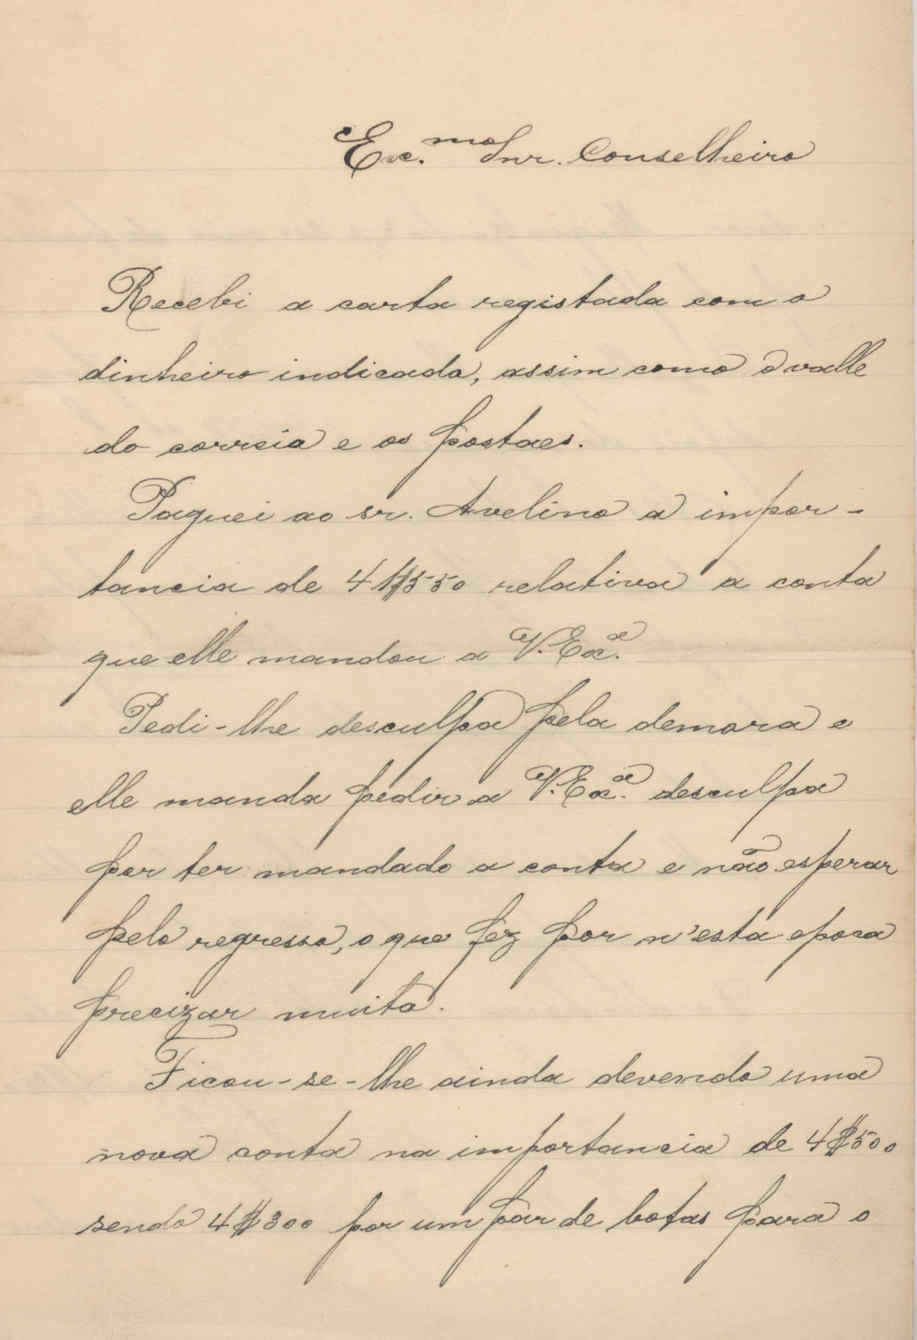 Exc.mo Snr. Conselheiro
Recebi a carta registada com o
dinheiro indicado, assim como o valle
do correio e os postaes.
Paguei ao sr. Avelino a impor-
tancia de 41$550 relativa a conta
que elle mandou a V. Exa.
Pedi-lhe desculpa pela demora e
elle manda pedir a V. Exa. desculpa
por ter mandado a conta e não esperar
pelo regresso, o que fez por n'esta epoca
precizar muito.
Ficou-se-lhe ainda devendo uma
nova conta na importancia de 4$500
sendo 4$300 por um par de botas para o